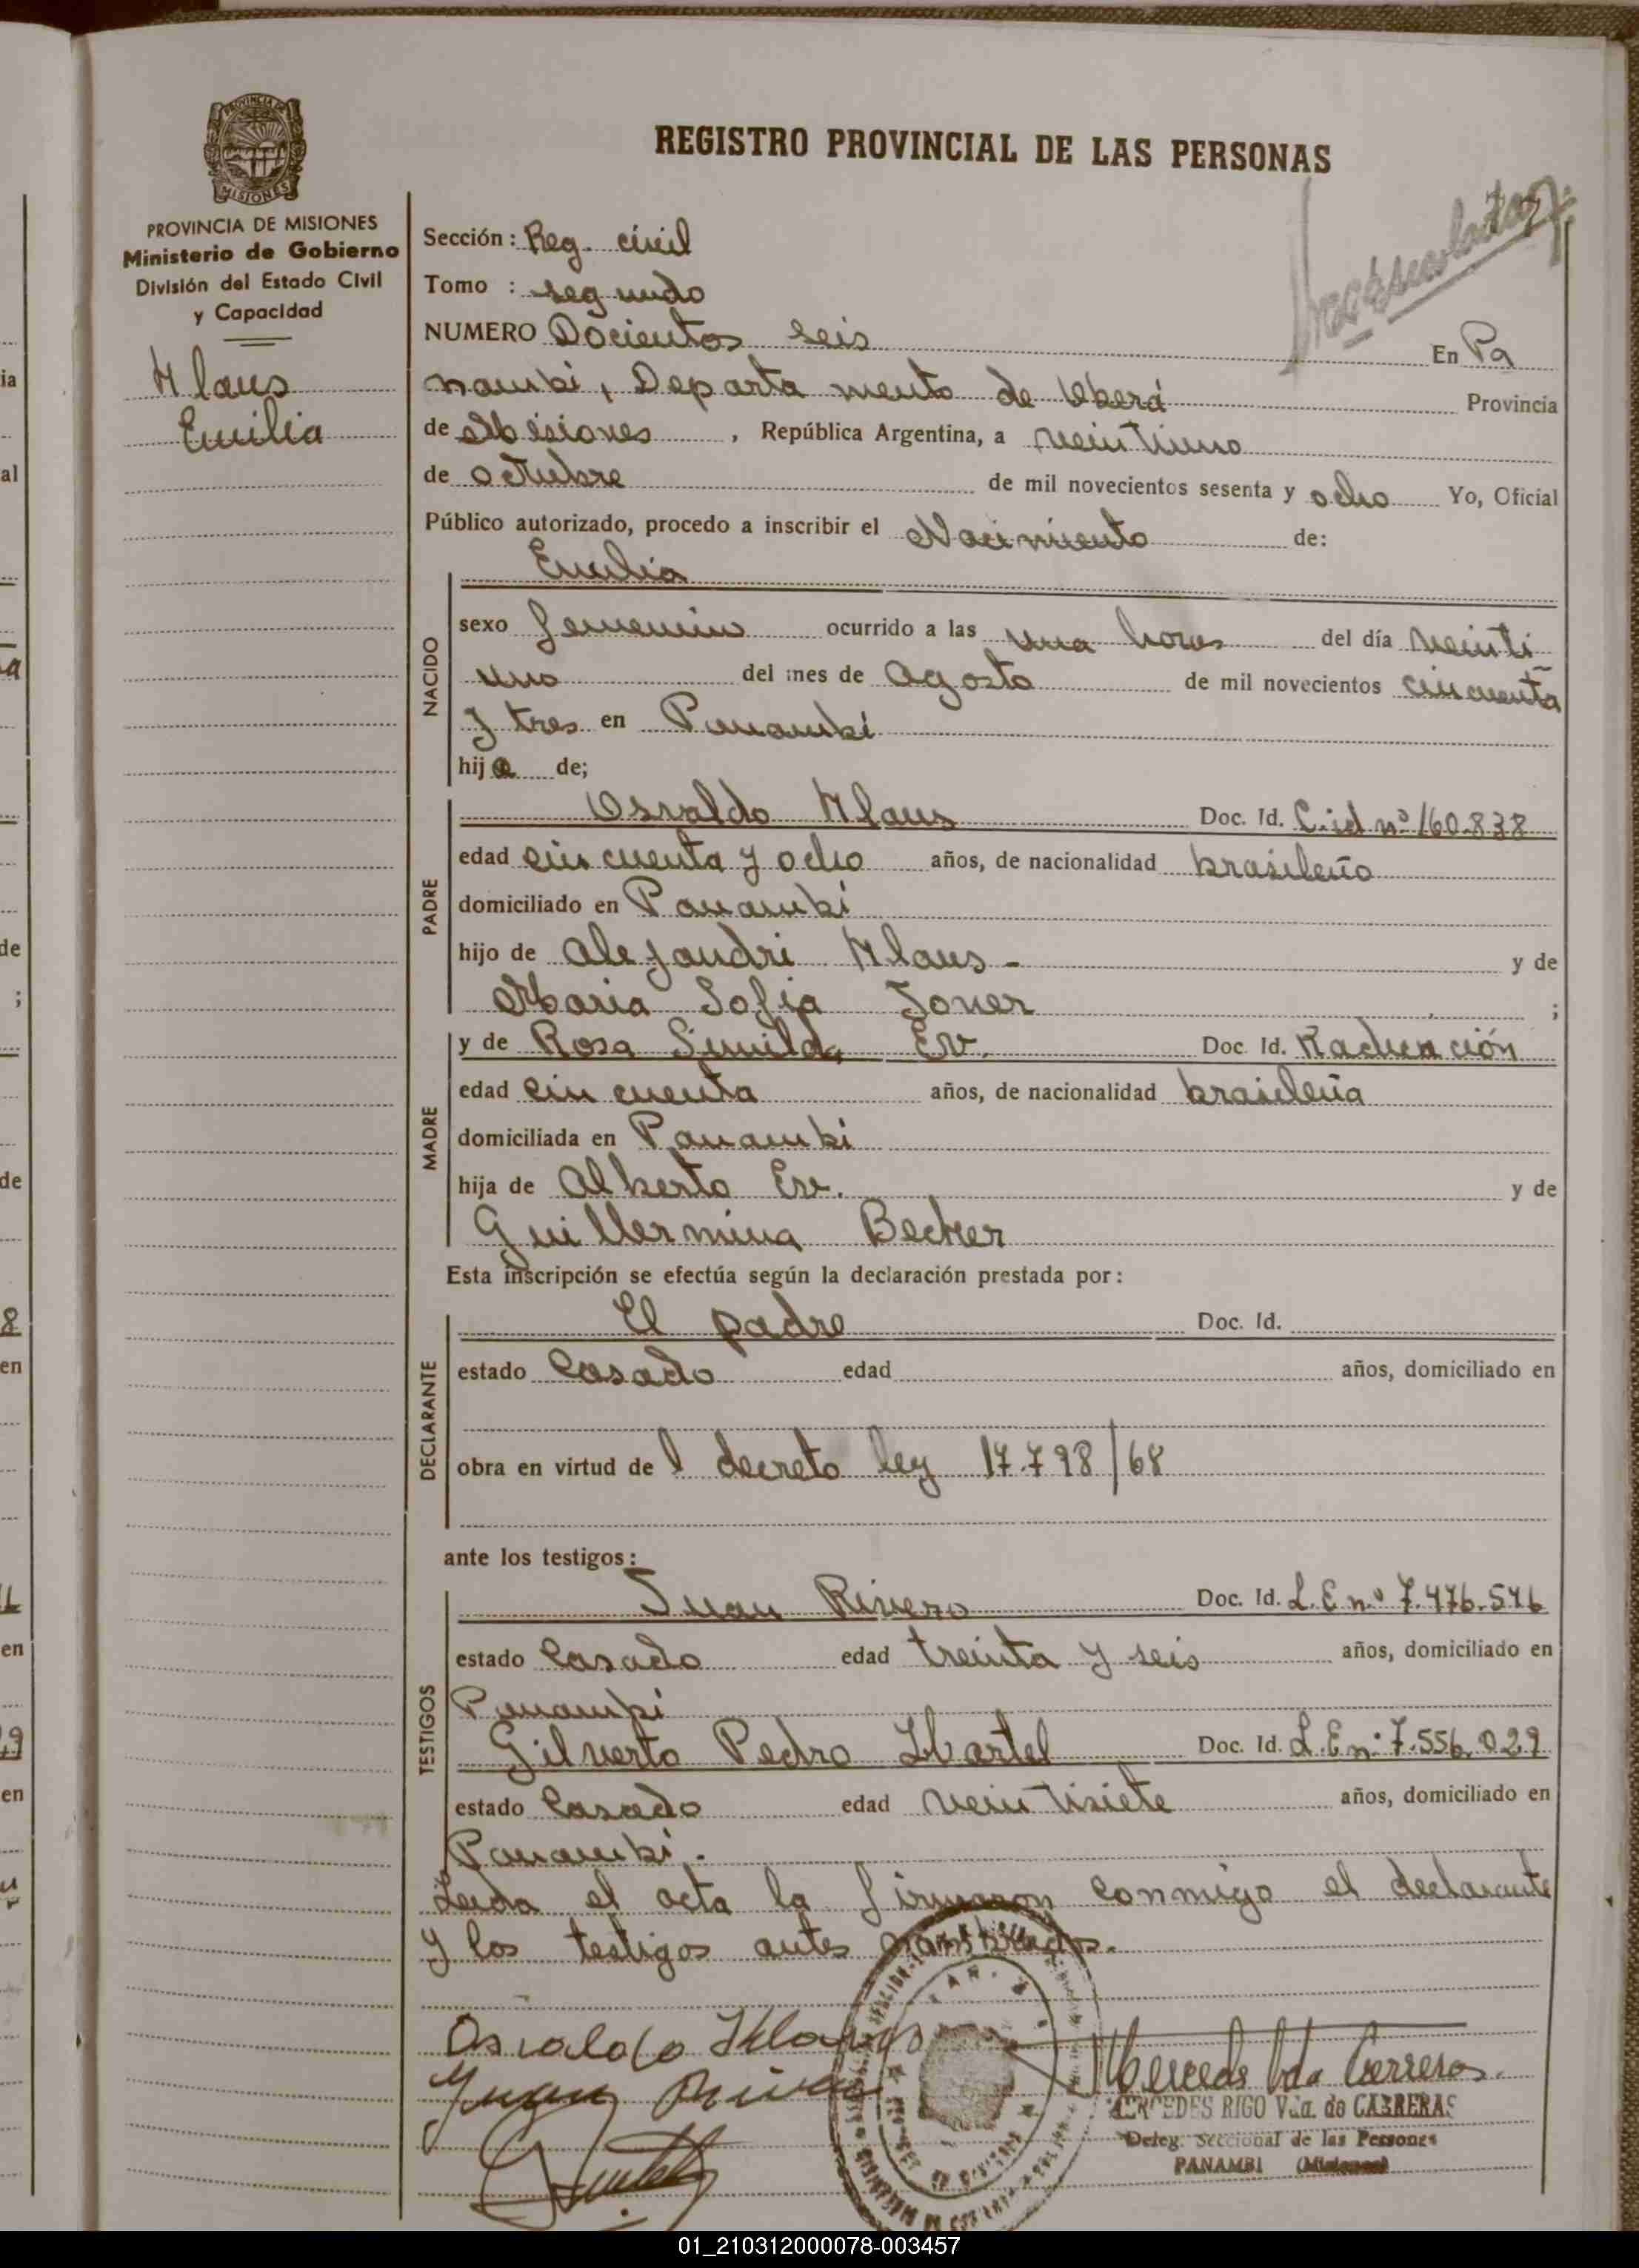 REGISTRO PROVINCIAL DE LAS PERSONAS
PROVINCIA DE MISIONES
Ministerio de Gobierno
División del Estado Civil
y Capacidad
Klaus
Emilia
Sección: Reg. civil
Tomo : segundo
NUMERO Docientos seis En Pa
nambi, Departamento de Oberá Provincia
de Misiones, República Argentina, a veintiuno
de octubre de mil novecientos sesenta y ocho Yo, Oficial
Público autorizado, procedo a inscribir el Nacimiento de:
NACIDO
Emilia
sexo femenino ocurrido a las una horas del día veinti
uno del mes de Agosto de mil novecientos cincuenta
y tres en Panambi
hija de;
PADRE
Osvaldo Klaus Doc. Id. C.id nº 160.838
edad cincuenta y ocho años, de nacionalidad brasileño
domiciliado en Panambi
hijo de Alejandri Klaus - y de
Maria Sofia Joner ;
MADRE
y de Rosa Semilda Erv. Doc. Id.
edad cincuenta años, de nacionalidad brasileña
domiciliada en Panambi
hija de Alberto Erv. y de
Guillermina Becker
Esta inscripción se efectúa según la declaración prestada por:
DECLARANTE
El padre Doc. Id.
estado Casado edad años, domiciliado en
obra en virtud del decreto ley 17.798/68
ante los testigos:
TESTIGOS
Juan Rivero Doc. Id. L.E nº 7.476.546
estado Casado edad treinta y seis años, domiciliado en
Panambi
Gilverto Pedro Hartel Doc. Id. L.E nº 7.556.029
estado Casado edad veintisiete años, domiciliado en
Panambi.
Leida el acta la firmaron conmigo el declarante
y los testigos antes nombrados.
Osvaldo Klaus
Juan Rivero
Mercedes Vda Carreras.
MERCEDES RIGO Vda. de CABRERAS
Deleg. Seccional de las Personas
PANAMBI (Misiones)
01_210312000078-003457